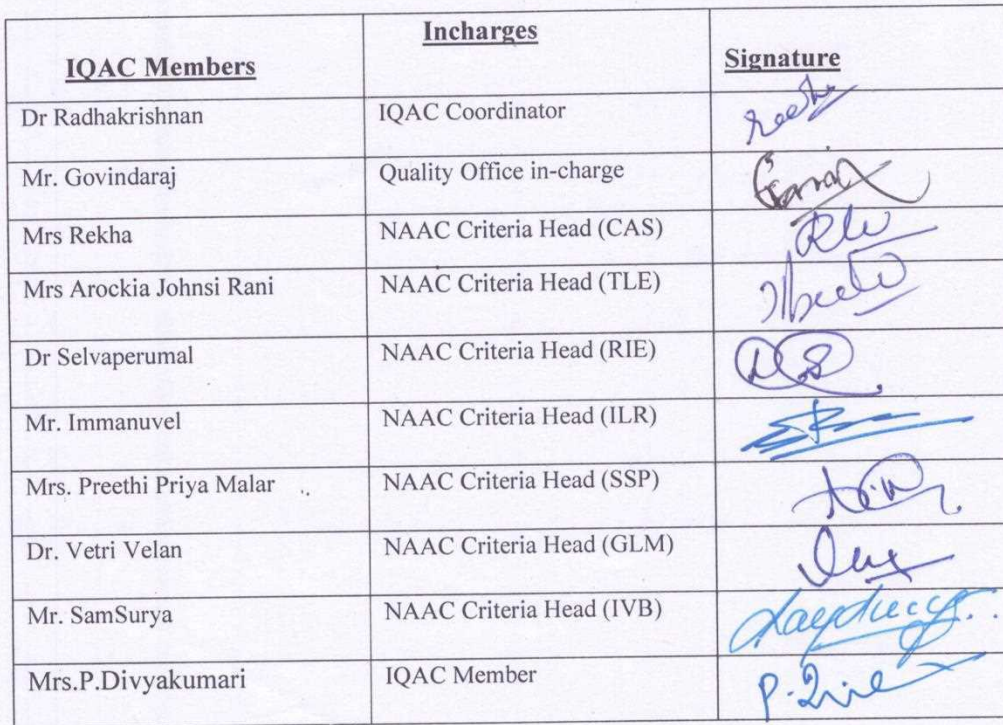 Incharges
IQAC Members
Signature
Dr Radhakrishnan IQAC Coordinator
Mr. Govindaraj Quality Office in-charge
Mrs Rekha NAAC Criteria Head (CAS)
Mrs Arockia Johnsi Rani NAAC Criteria Head (TLE)
Dr Selvaperumal NAAC Criteria Head (RIE)
Mr. Immanuvel NAAC Criteria Head (ILR)
Mrs. Preethi Priya Malar NAAC Criteria Head (SSP)
Dr. Vetri Velan NAAC Criteria Head (GLM)
Mr. SamSurya NAAC Criteria Head (IVB)
Mrs.P.Divyakumari IQAC Member